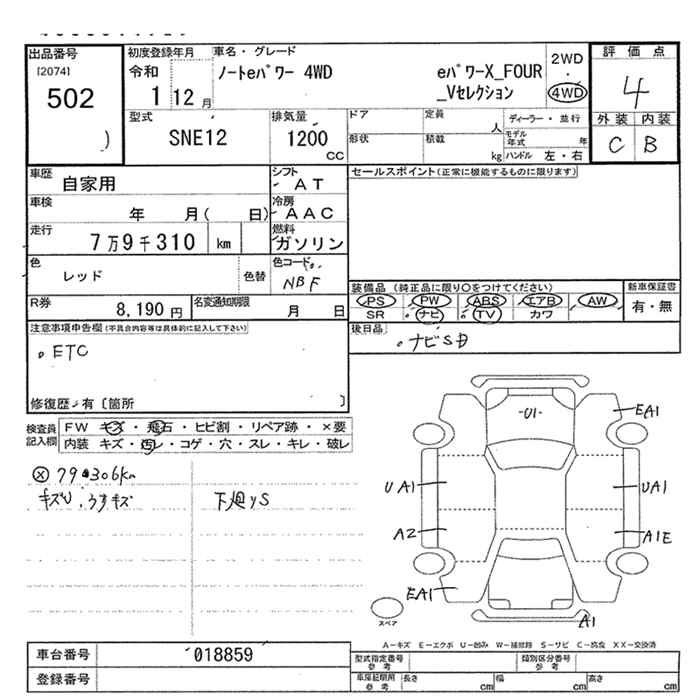 出品番号
[2074]
502
)
初度登録年月
令和
1 12 月
車名・グレード
ノートeパワー 4WD eパワーX_FOUR
_Vセレクション
2WD
・
4WD
評価点
4
外装 内装
C B
型式
SNE12
排気量
1200
cc
ドア
形状
定員
人
積載
kg
ディーラー・並行
モデル年式 年
ハンドル 左・右
車歴
自家用
シフト
AT
車検
年 月( 日)
冷房
AAC
走行
7万9千310 km
燃料
ガソリン
色
レッド
色替
色コード
NBF
R券
8,190 円
名変通知期限
月 日
セールスポイント(正常に機能するものに限ります)
装備品 (純正品に限り○をつけてください)
新車保証書
PS PW ABS エアB AW
SR ナビ TV カワ
有・無
後日品
。ナビSD
注意事項申告欄(不具合内容等は具体的に記入して下さい)
。ETC
修復歴 有〔箇所 〕
検査員記入欄
FW キズ・飛石・ヒビ割・リペア跡・×要
内装 キズ・汚レ・コゲ・穴・スレ・キレ・破レ
79306km
キズU.うすキズ
下廻りS
U1
EA1
UA1
UA1
A2
A1E
EA1
A1
スペア
A－キズ E－エクボ U－凹み W－補修跡 S－サビ C－腐食 XX－交換済
車台番号
018859
登録番号
型式指定番号
参考
類別区分番号
参考
車庫証明用
参考
長さ cm
幅 cm
高さ cm